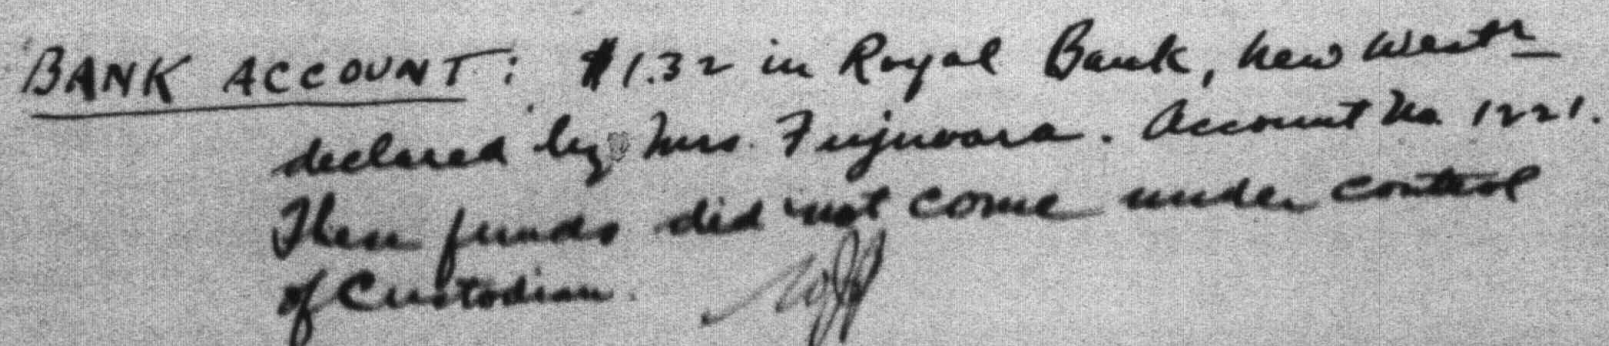 BANK ACCOUNT: $1.32 in Royal Bank, New Westr
declared by Mrs. Fujuwara. Account No. 1221.
These funds did not come under control
of Custodian.